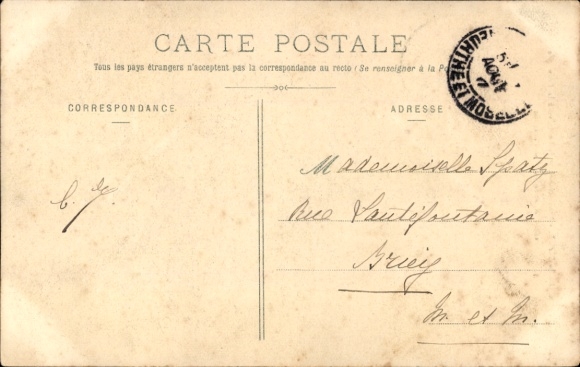 CARTE POSTALE
Tous les pays étrangers n'acceptent pas la correspondance au recto (Se renseigner à la Po
CORRESPONDANCE
ADRESSE
MEURTHE-ET-MOSELLE
AOUT
Mademoiselle Spatz
Rue Santéfontaine
Briey
M. et M.